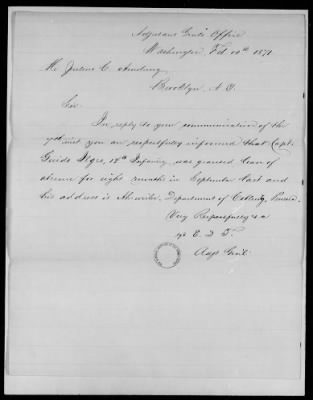 Adjutant Genl's Office
Washington, Feb 10th 1871.
Mr. Julius C.
Brooklyn, N.Y.
Sir:
In reply to your communication of the
7th inst. you are respectfully informed that Capt.
Guido Ilges, 14th Infantry, was granted leave of
absence for eight months in September last and
his address is Ahrweiler, Department of Coblentz, Prussia.
Very Respectfully &c
E. D. T.
Adjt Genl.